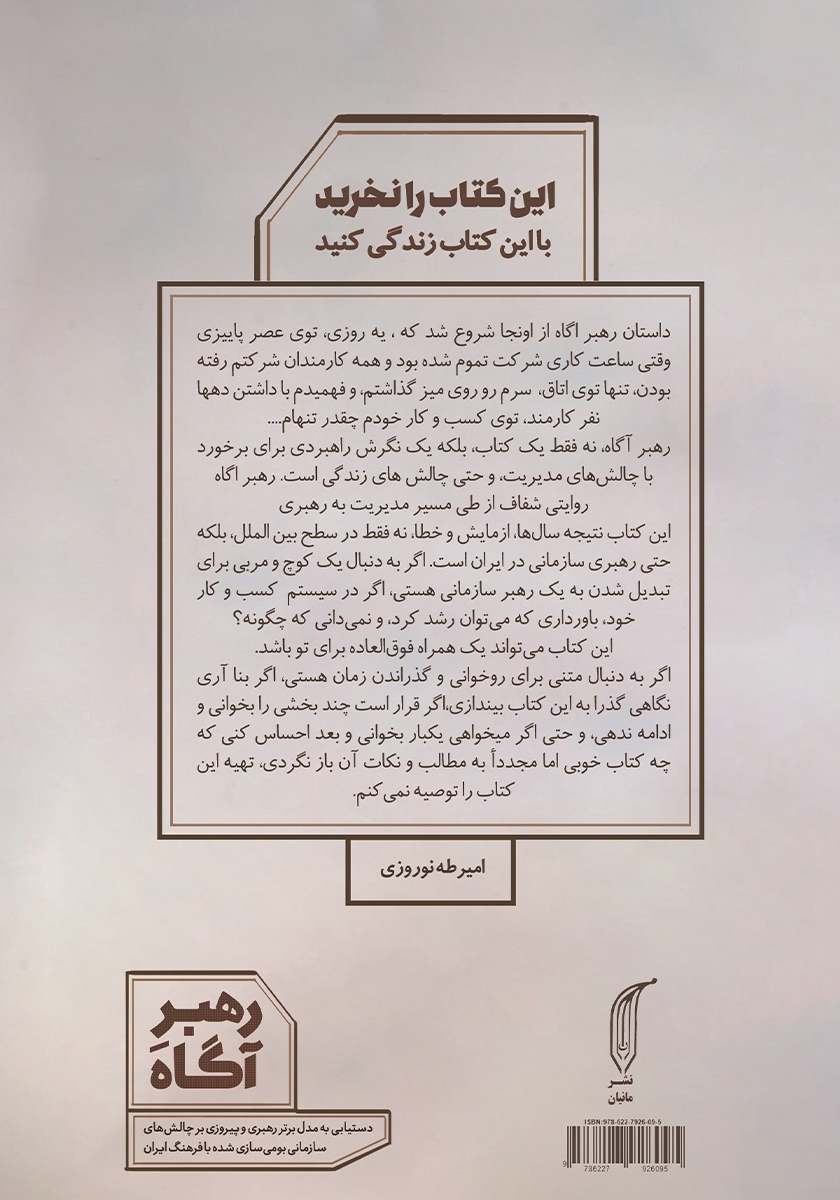 این کتاب را نخرید
با این کتاب زندگی کنید
داستان رهبر اگاه از اونجا شروع شد که ، یه روزی، توی عصر پاییزی
وقتی ساعت کاری شرکت تموم شده بود و همه کارمندان شرکتم رفته
بودن، تنها توی اتاق، سرم رو روی میز گذاشتم، و فهمیدم با داشتن دهها
نفر کارمند، توی کسب و کار خودم چقدر تنهام....
رهبر آگاه، نه فقط یک کتاب، بلکه یک نگرش راهبردی برای برخورد
با چالش‌های مدیریت، و حتی چالش های زندگی است. رهبر اگاه
روایتی شفاف از طی مسیر مدیریت به رهبری
این کتاب نتیجه سال‌ها، ازمایش و خطا، نه فقط در سطح بین الملل، بلکه
حتی رهبری سازمانی در ایران است. اگر به دنبال یک کوچ و مربی برای
تبدیل شدن به یک رهبر سازمانی هستی، اگر در سیستم کسب و کار
خود، باورداری که می‌توان رشد کرد، و نمی‌دانی که چگونه؟
این کتاب می‌تواند یک همراه فوق‌العاده برای تو باشد.
اگر به دنبال متنی برای روخوانی و گذراندن زمان هستی، اگر بنا آری
نگاهی گذرا به این کتاب بیندازی،اگر قرار است چند بخشی را بخوانی و
ادامه ندهی، و حتی اگر میخواهی یکبار بخوانی و بعد احساس کنی که
چه کتاب خوبی اما مجدداً به مطالب و نکات آن باز نگردی، تهیه این
کتاب را توصیه نمی‌کنم.
امیرطه نوروزی
رهبر
آگاهَ
دستیابی به مدل برتر رهبری و پیروزی بر چالش‌های
سازمانی بومی‌سازی شده با فرهنگ ایران
نشر
مانیان
ISBN:978-622-7926-09-5
9 786227 926095